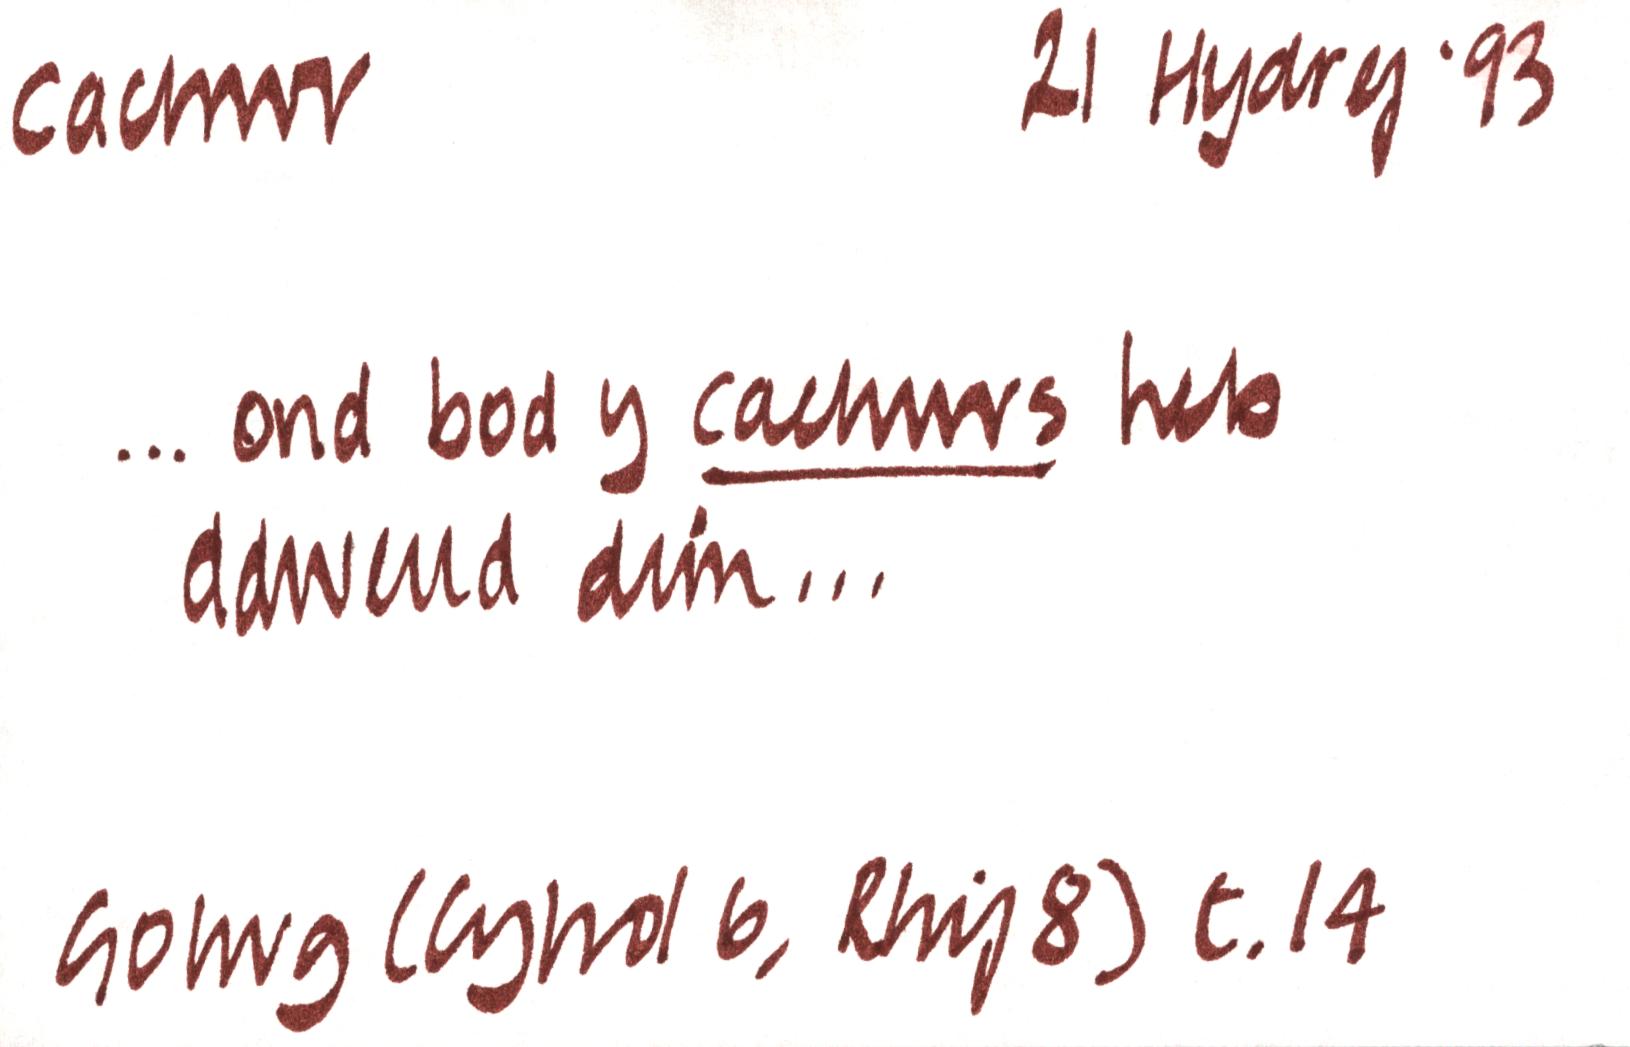 cachwr 21 Hydref '93
... ond bod y cachwrs heb
ddweud dim...
Golwg (Cyfrol 6, Rhif 8) t.14